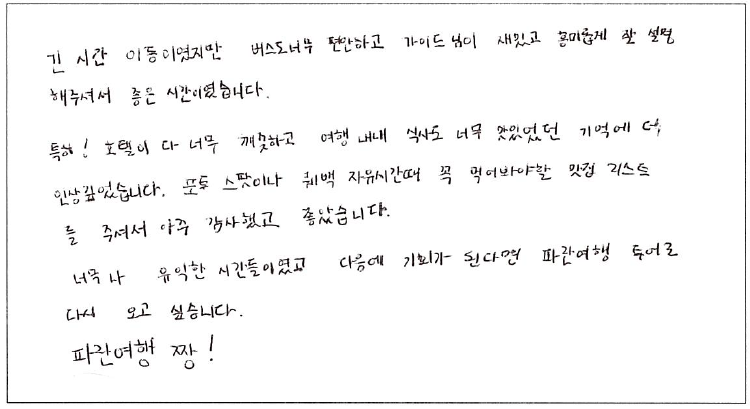 긴 시간 이동이였지만 버스도너무 편안하고 가이드님이 재밌고 흥미롭게 잘 설명
해주셔서 좋은 시간이였습니다.
특히! 호텔이 다 너무 깨끗하고 여행 내내 식사도 너무 맛있었던 기억에 더
인상깊었습니다. 포토 스팟이나 퀘백 자유시간때 꼭 먹어봐야할 맛집 리스트
를 주셔서 아주 감사했고 좋았습니다.
너무나 유익한 시간들이였고 다음에 기회가 된다면 파란여행 투어로
다시 오고 싶습니다.
파란여행 짱!